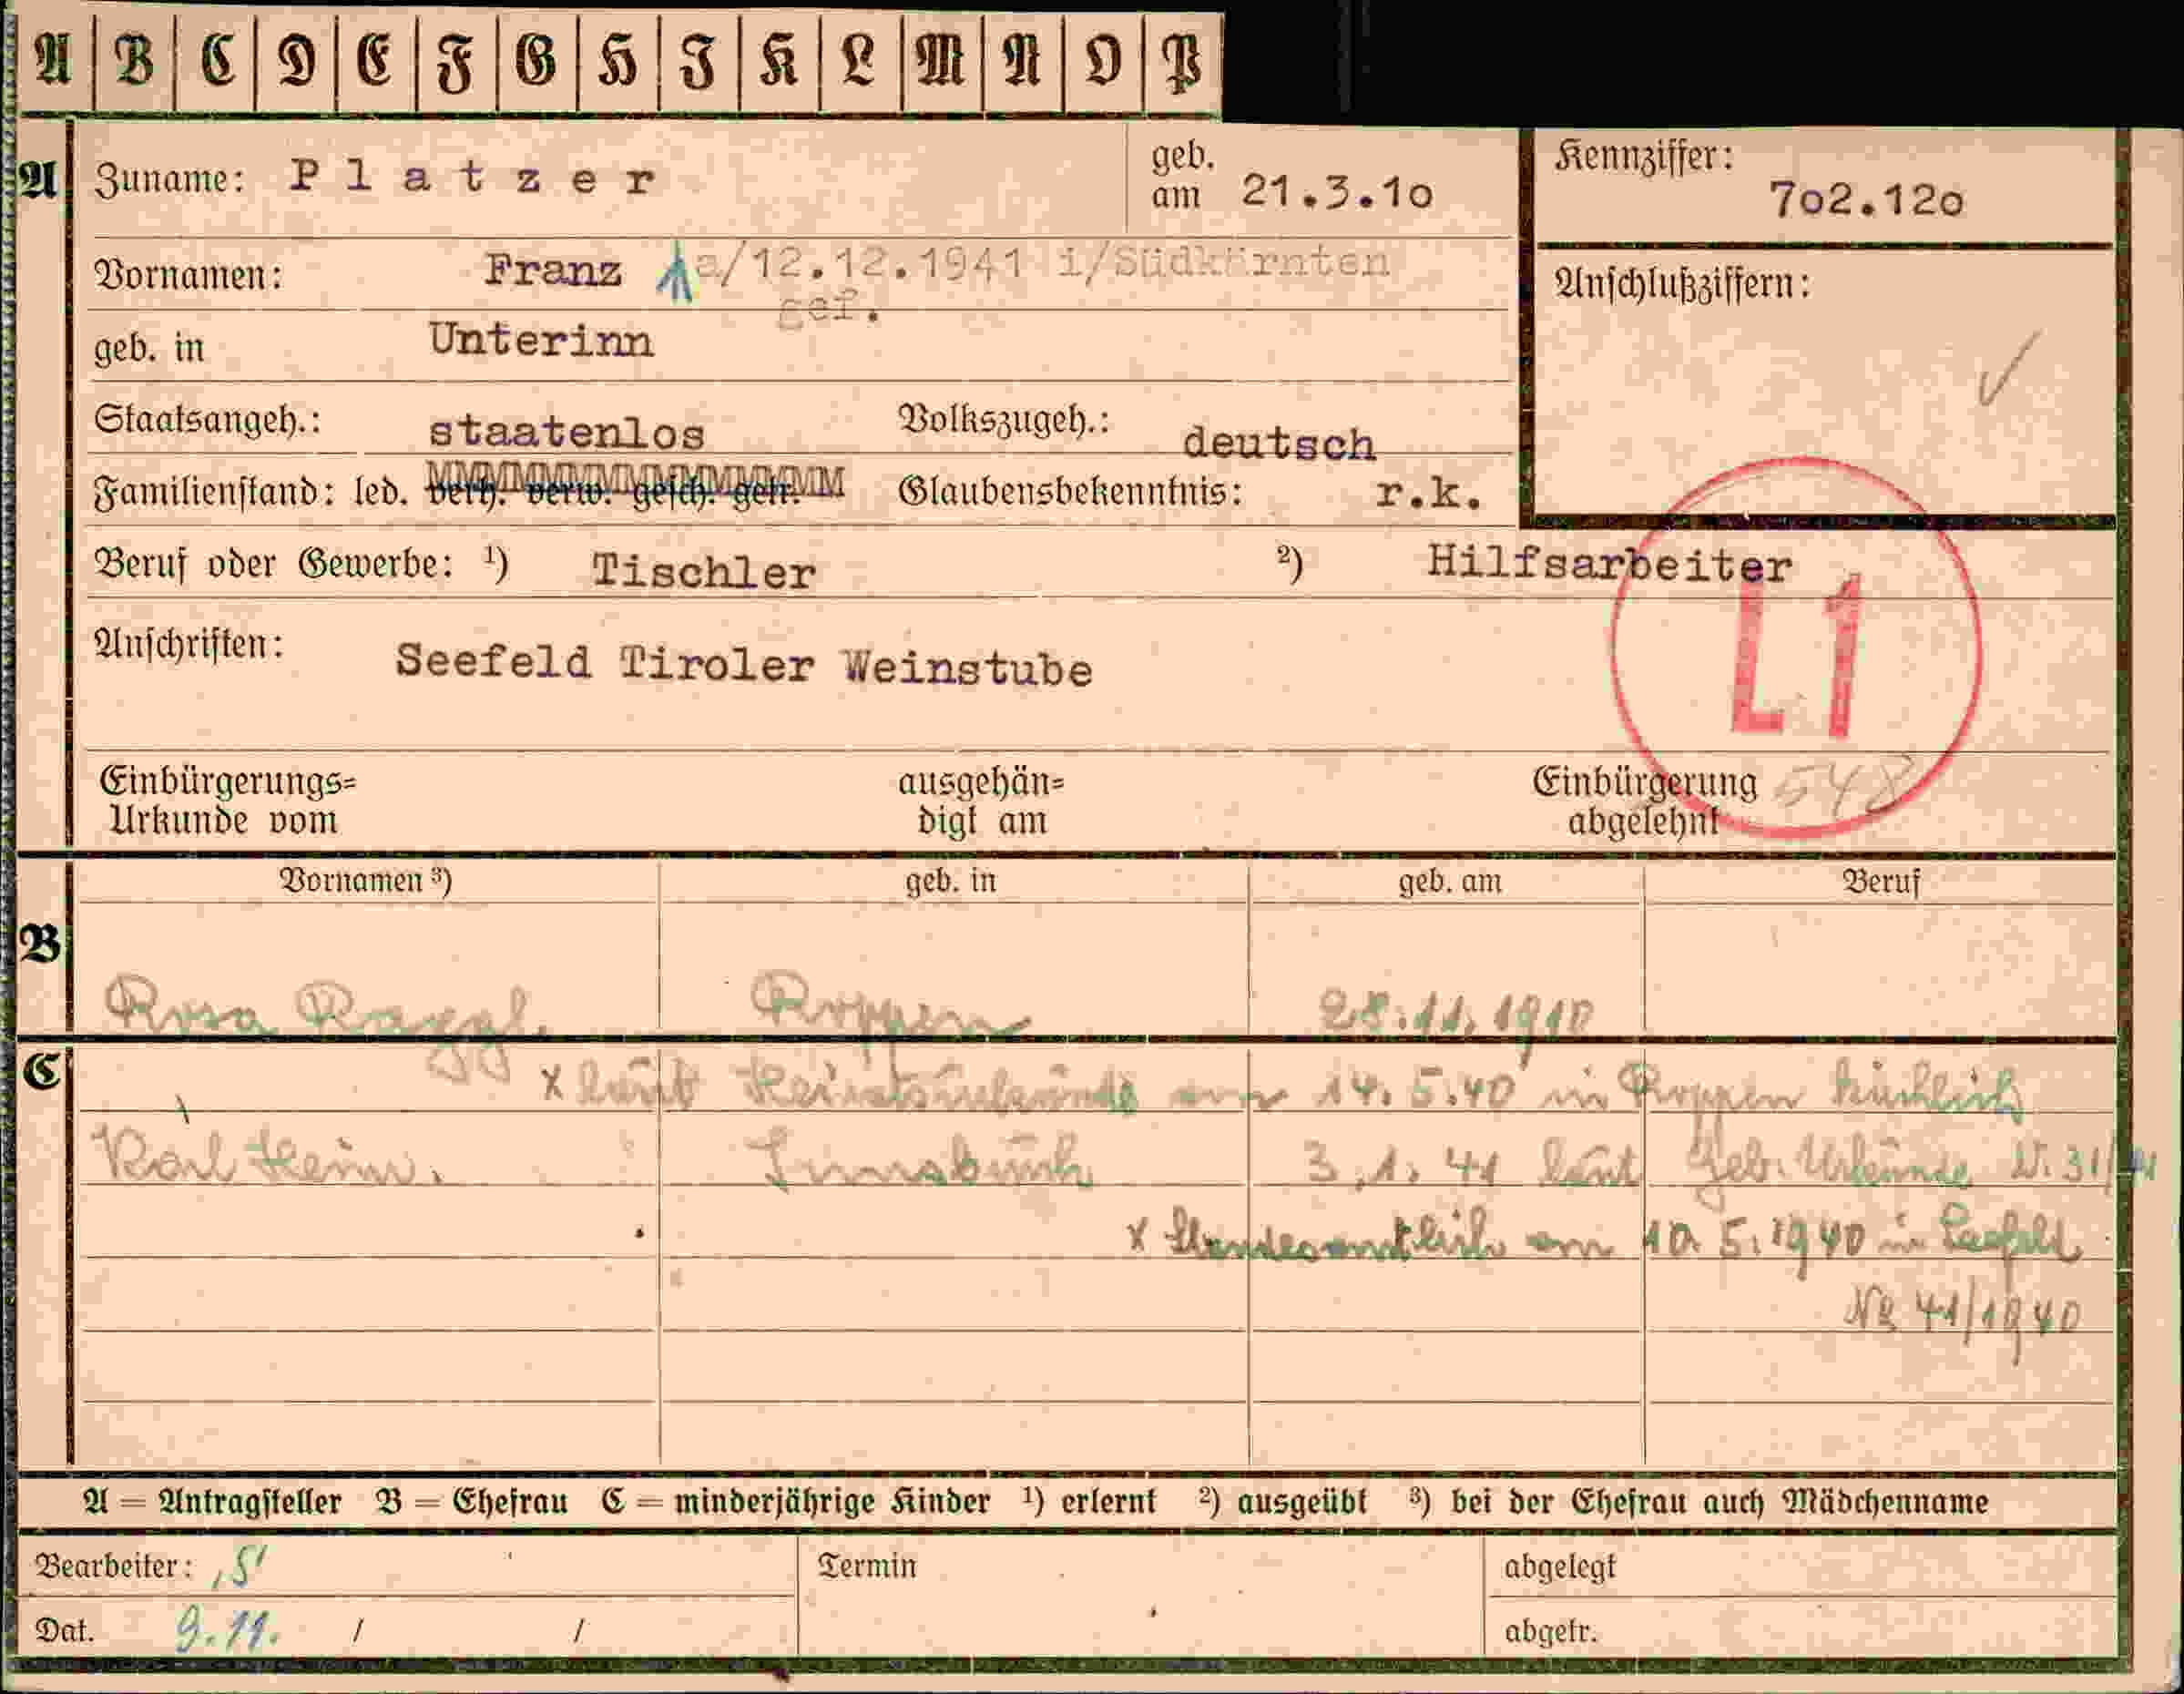 A B C D E F G H I K L M N O P
A Zuname: Platzer geb. am 21.3.1o Kennziffer: 7o2.12o
Vornamen: Franz a/12.12.1941 i/Südkärnten
gef.
Anschlußziffern:
geb. in Unterinn
Staatsangeh.: staatenlos Volkszugeh.: deutsch
Familienstand: led. verh. verw. gesch. getr. Glaubensbekenntnis: r.k.
Beruf oder Gewerbe: 1) Tischler 2) Hilfsarbeiter
L1
Anschriften: Seefeld Tiroler Weinstube
Einbürgerungs= ausgehän= Einbürgerung 548
Urkunde vom digt am abgelehnt
Vornamen 3) geb. in geb. am Beruf
B
Rosa Raggl. Roppen 28.11.1910
C
x laut Heiratsurkunde am 14.5.40 in Roppen kirchlich
Karl Heinz. Innsbruck 3.1.41 laut Geb. Urkunde N. 31/41
x Standesamtlich am 10.5.1940 in Seefeld
No 41/1940
A = Antragsteller B = Ehefrau C = minderjährige Kinder 1) erlernt 2) ausgeübt 3) bei der Ehefrau auch Mädchenname
Bearbeiter: S Termin abgelegt
Dat. 9.11. / / abgetr.